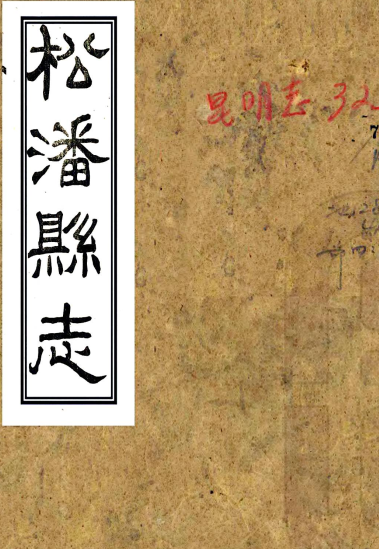 松潘縣志
昆明志 32
7